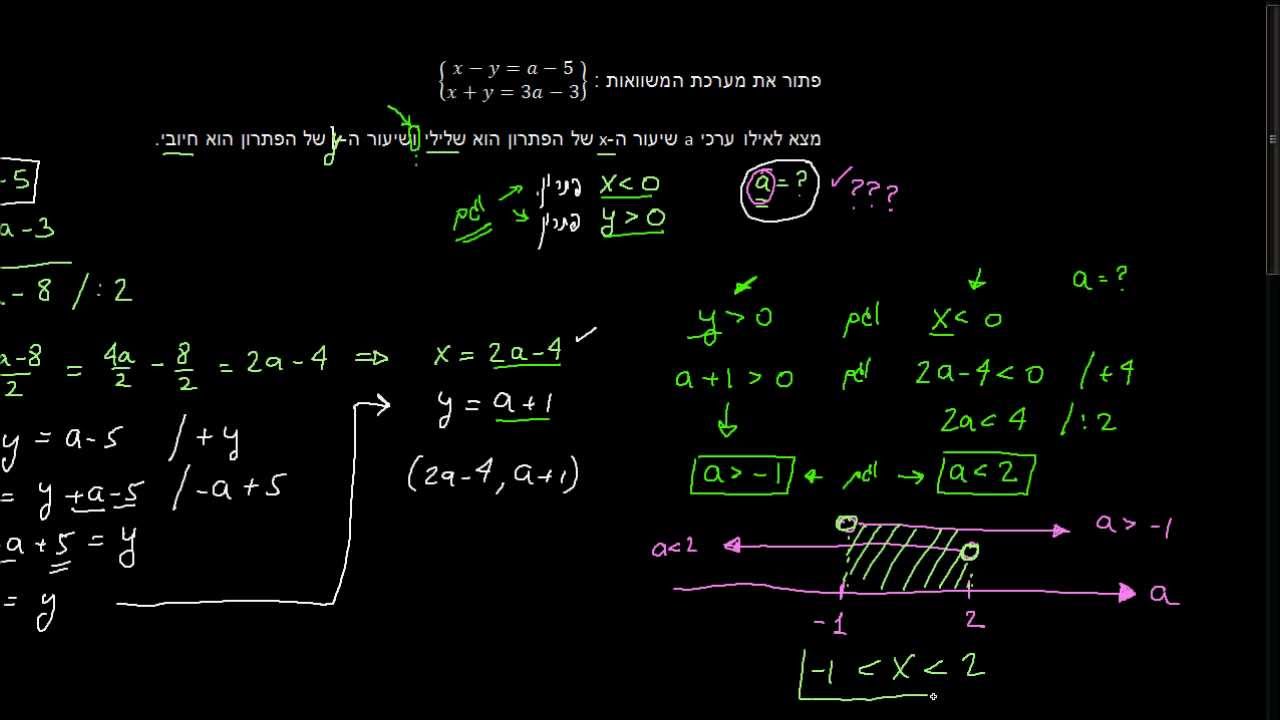 פתור את מערכת המשוואות : { x − y = a − 5
x + y = 3a − 3 }
מצא לאילו ערכי a שיעור ה-x של הפתרון הוא שלילי ושיעור ה-y של הפתרון הוא חיובי.
a = ? ???
פתרון x < 0
וגם
פתרון y > 0
-5
a - 3
- 8 / : 2
a-8/2 = 4a/2 - 8/2 = 2a - 4 ⇒ x = 2a - 4
y = a + 1
y = a - 5 / + y
= y + a - 5 / - a + 5
a + 5 = y
= y
(2a-4, a+1)
a = ?
y > 0 וגם x < 0
a + 1 > 0 וגם 2a - 4 < 0 / + 4
2a < 4 / : 2
a > -1 ← וגם → a < 2
a > -1
a < 2
a
-1 2
-1 < x < 2